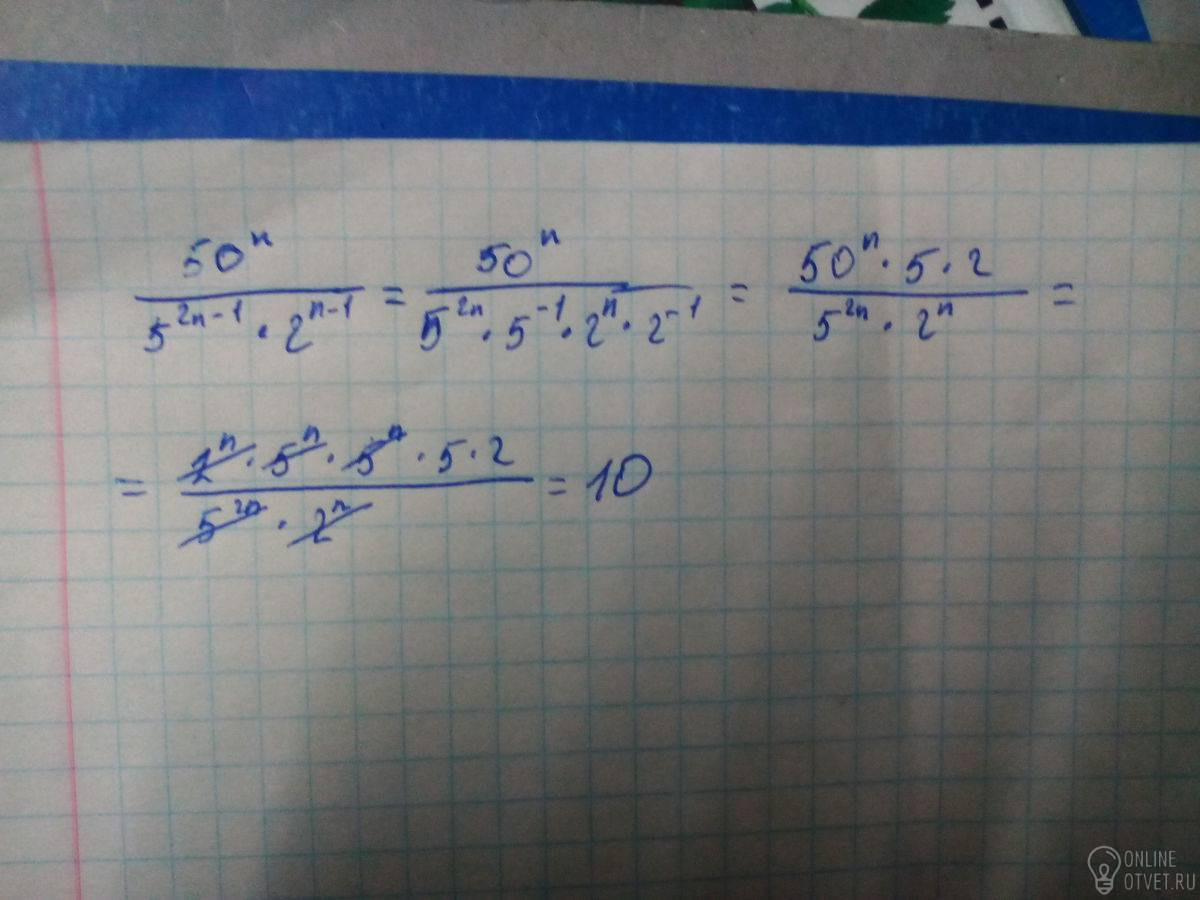 50ⁿ / (5²ⁿ⁻¹ · 2ⁿ⁻¹) = 50ⁿ / (5²ⁿ · 5⁻¹ · 2ⁿ · 2⁻¹) = (50ⁿ · 5 · 2) / (5²ⁿ · 2ⁿ) =
= (2ⁿ · 5ⁿ · 5ⁿ · 5 · 2) / (5²ⁿ · 2ⁿ) = 10
ONLINE
OTVET.RU